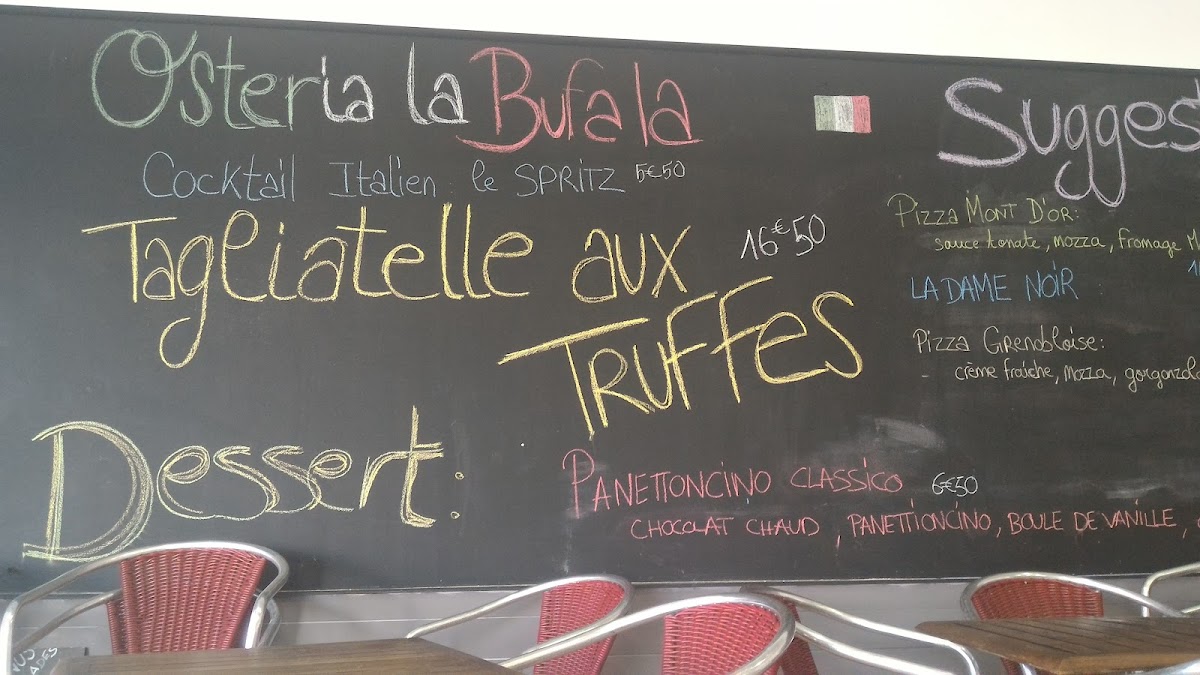 Osteria la Bufala
Cocktail Italien le SPRITZ 5€50
Tagliatelle aux 16€50
TRUFFES
Dessert:
PANETTONCINO CLASSICO 6€50
CHOCOLAT CHAUD, PANETTIONCINO, BOULE DE VANILLE,
Sugges
Pizza Mont D'or:
sauce tomate, mozza, fromage M
LA DAME NOIR
Pizza Grenobloise:
- crème fraîche, mozza, gorgonzola